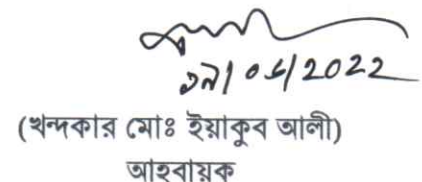 /2022
(খন্দকার মোঃ ইয়াকুব আলী)
আহবায়ক